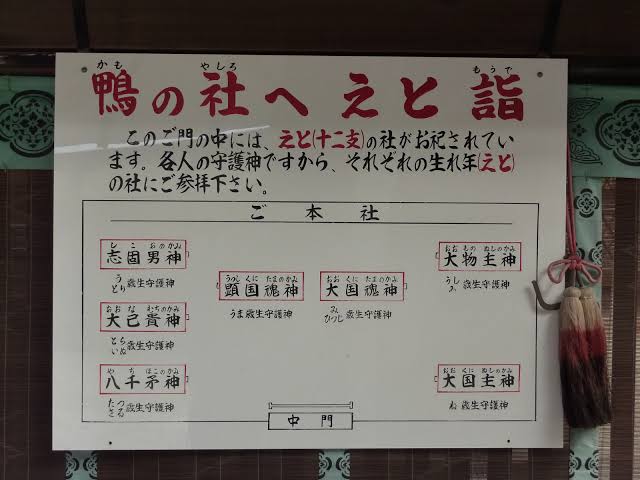 かも やしろ もうで
鴨の社へえと詣
このご門の中には、えと(十二支)の社がお祀されてい
ます。各人の守護神ですから、それぞれの生れ年(えと)
の社にご参拝下さい。
ご本社
しこおのかみ
志固男神
うとり歳生守護神
おおなむちのかみ
大己貴神
とらいぬ歳生守護神
やちほこのかみ
八千矛神
たつさる歳生守護神
うつしくにたまのかみ
顕国魂神
うま歳生守護神
おおくにたまのかみ
大国魂神
みひつじ歳生守護神
おおものぬしのかみ
大物主神
うしゐ歳生守護神
おおくにぬしのかみ
大国主神
ね歳生守護神
中門